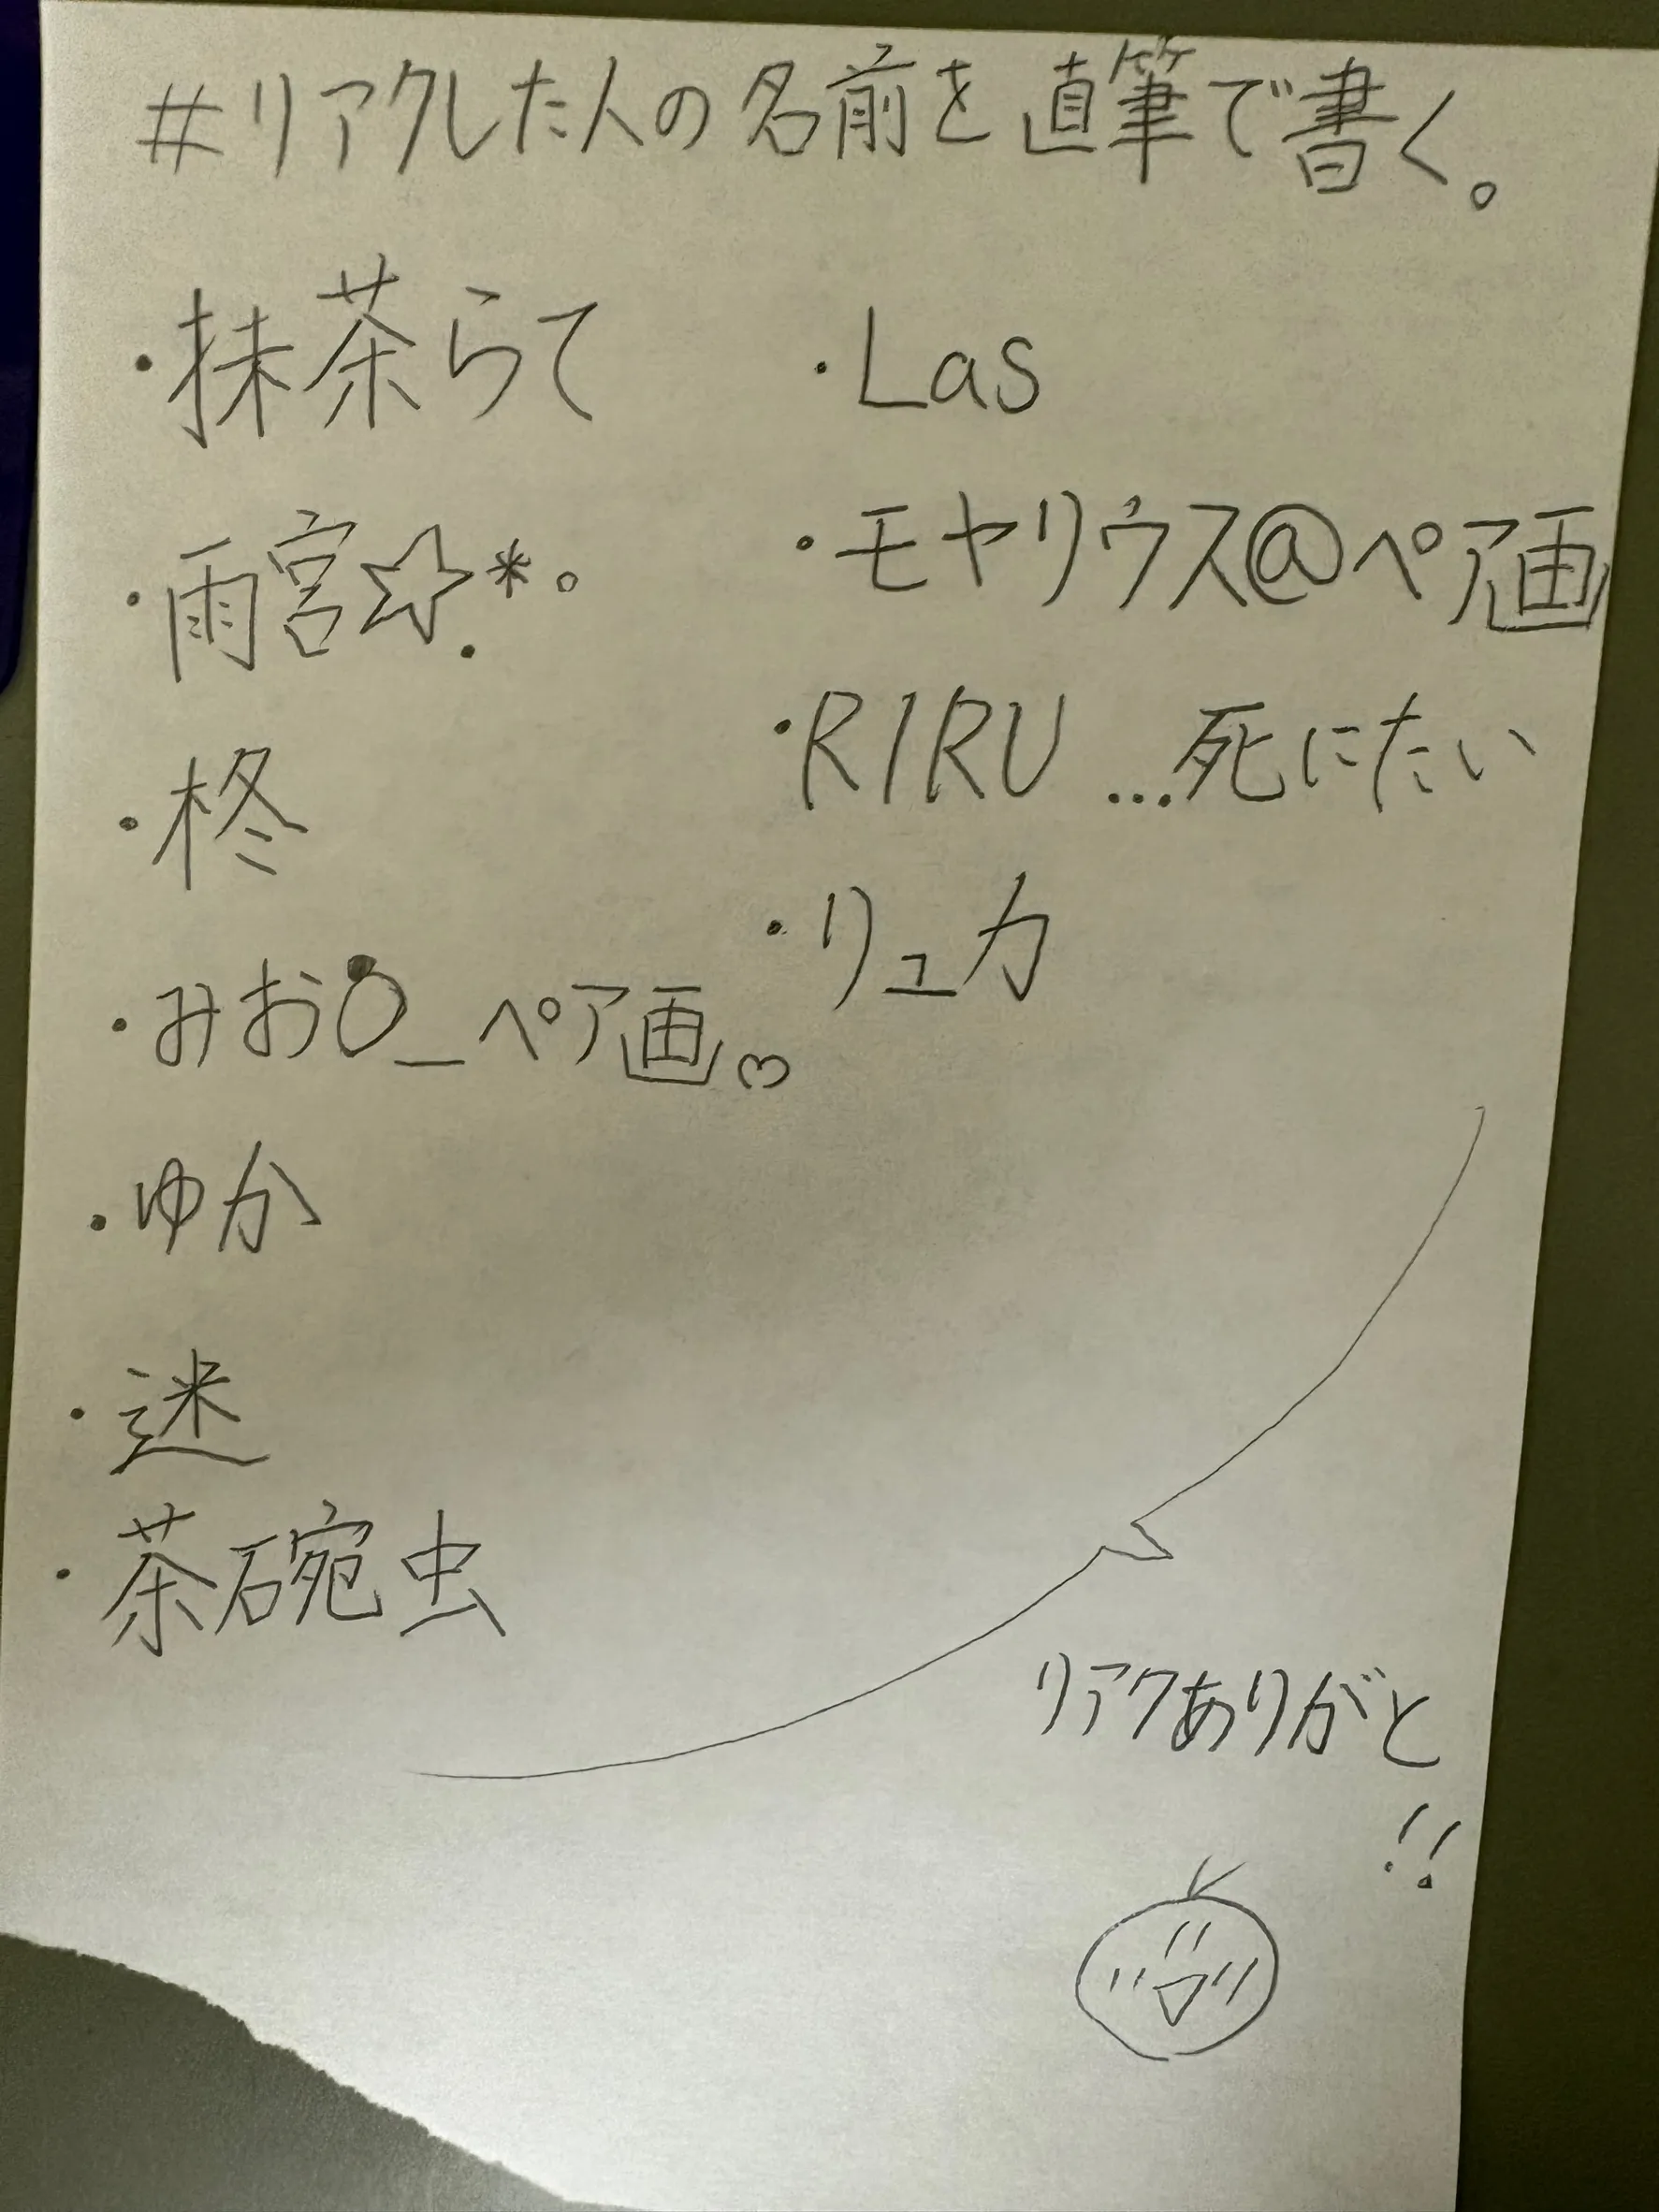 #リアクした人の名前を直筆で書く。
・抹茶らて
・雨宮☆*。.
・柊
・みおO_ペア画ω
・ゆか
・迷
・茶碗虫
・Las
・モヤリウス@ペア画
・RIRU …死にたい
・リュカ
リアクありがと
!!